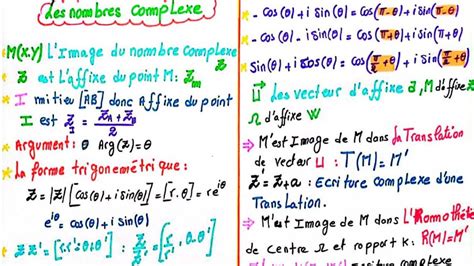 Les nombres complexe
M(x.y) L'Image du nombre Complexe
z est L'affixe du point M: z_m z
I milieu [AB] donc Affixe du point
I est z_I = (z_A + z_B)/2
Argument: θ Arg(z) = θ
La forme trigonométrique:
z = |z| [cos(θ) + i sin(θ)] = [r.θ] = re^{iθ}
e^{iθ} = cos(θ) + i sin(θ)
- cos(θ) + i Sin(θ) = Cos(π-θ) + i Sin(π-θ)
Sin(θ) + i Cos(θ) = Cos(π/2-θ) + i Sin(π/2-θ)
Les vecteur d'affixe a, M d'affixe z
Ω d'affixe W
⇒ M' est Image de M dans la Translation
de vecteur u : T(M) = M'
z' = z + a : Ecriture complexe d'une
Translation.
⇒ M' est Image de M dans L'Homothétie
de centre Ω et rapport k : R(M) = M'